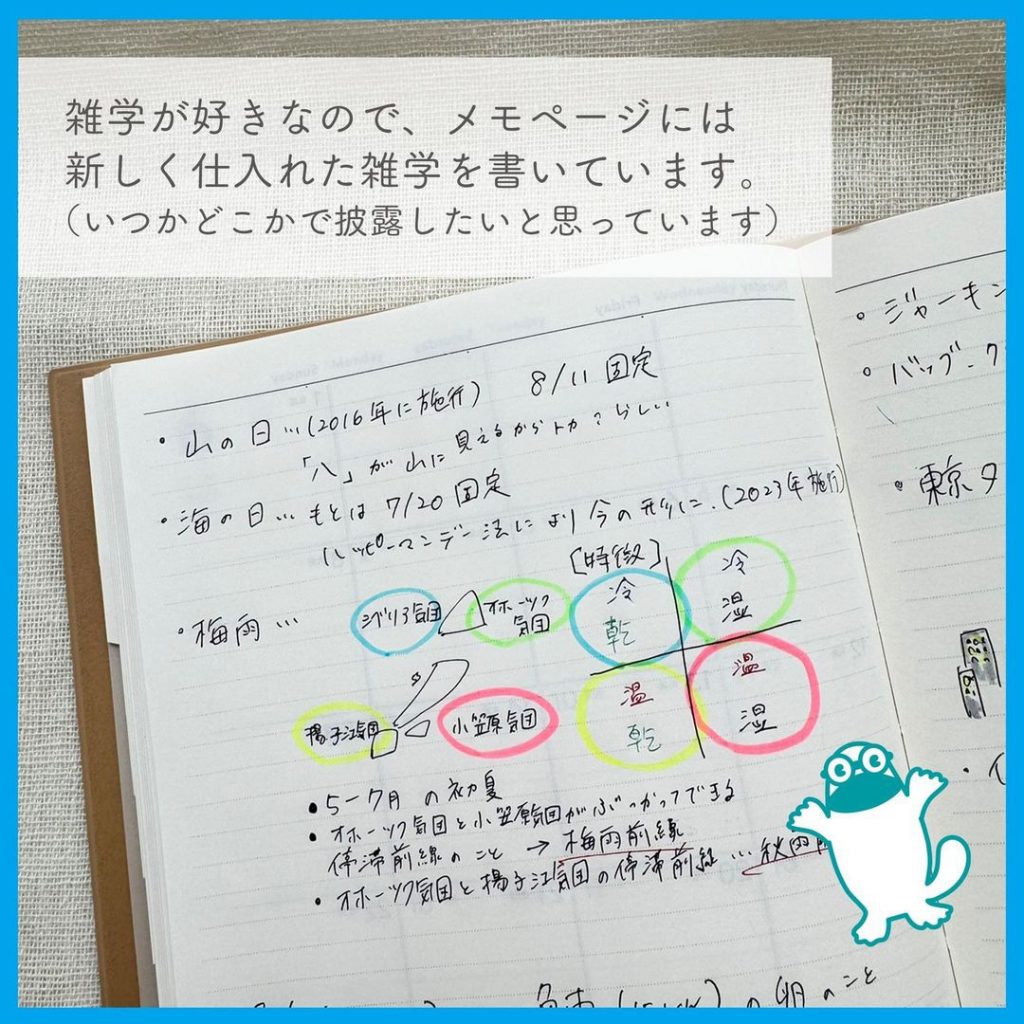 雑学が好きなので、メモページには
新しく仕入れた雑学を書いています。
（いつかどこかで披露したいと思っています）
・山の日…（2016年に施行） 8/11 固定
「八」が山に見えるからトカ？らしい
・海の日… もとは 7/20 固定
ハッピーマンデー法により今の形に.（2023年施行）
・梅雨…
シベリア気団
オホーツク
気団
揚子江気団
小笠原気団
[特徴]
冷
乾
冷
湿
温
乾
温
湿
• 5-7月 の初夏
• オホーツク気団と小笠原気団がぶつかってできる
停滞前線のこと → 梅雨前線
• オホーツク気団と揚子江気団の停滞前線 … 秋雨
の卵のこと
・ジャーキン
・バッグ・ク
・東京タ